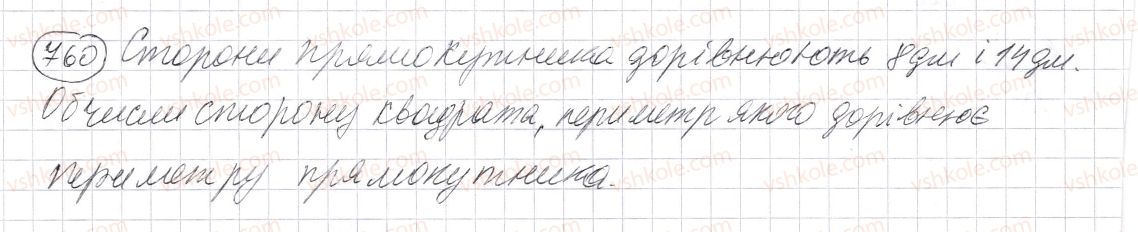 760 Сторони прямокутника дорівнюють 8дм і 14дм.
Обчисли сторону квадрата, периметр якого дорівнює
периметру прямокутника.